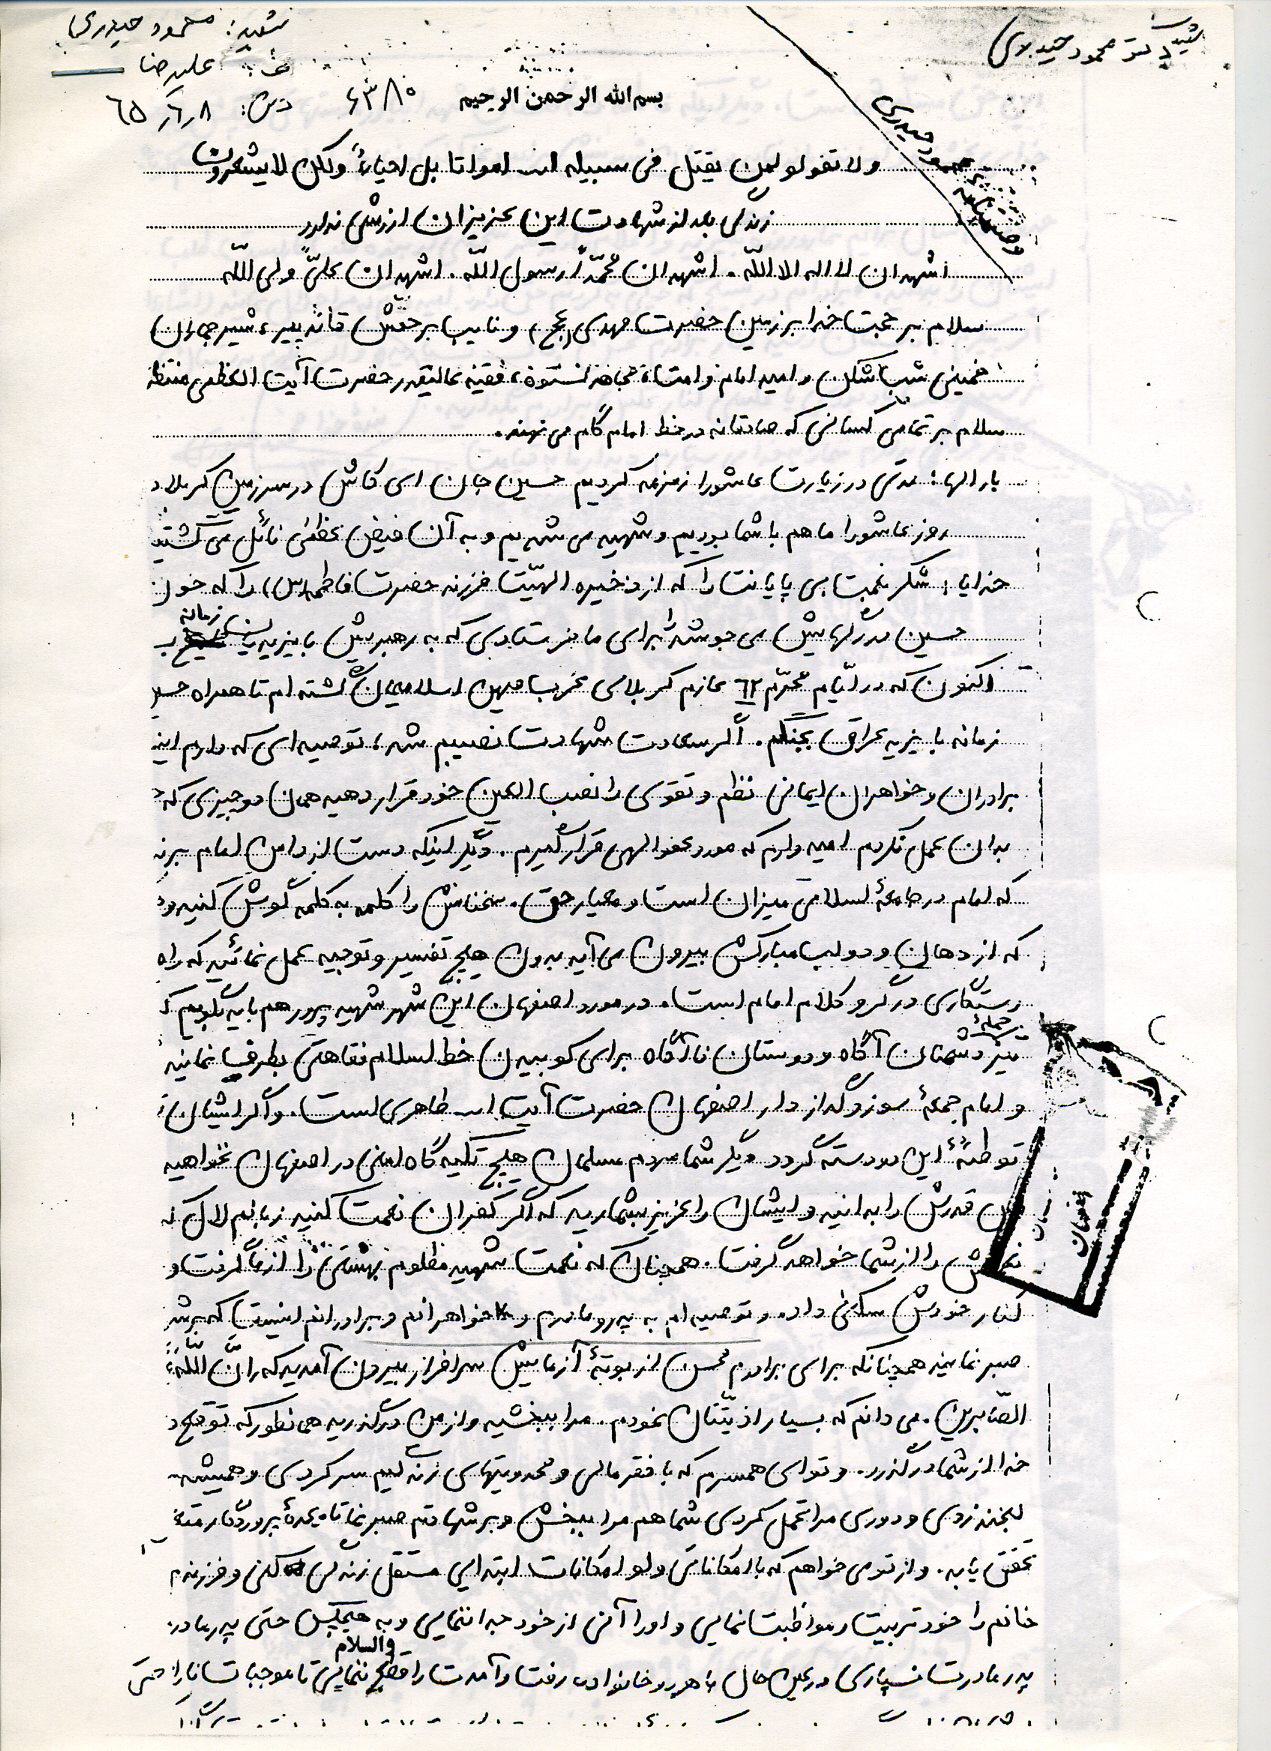 شهید: محمود حیدری
علیرضا
۶۳۸۰
۶۵/۶/۸
شهید دکتر محمود حیدری
بسم الله الرحمن الرحیم
وصیتنامه محمود حیدری
ولا تقولو لمن یقتل فی سبیل الله امواتا بل احیاءٌ ولکن لا یشعرون
زندگی بعد از شهادت این عزیزان ارزشی ندارد
اشهد ان لا اله الا اللّه . اشهد ان محمّداً رسول اللّه . اشهد ان علیّ ولی اللّه
سلام بر حجت خدا بر زمین حضرت مهدی (عج) و نایب بر حقش قائد پیر، شیر جماران
خمینی بت شکن و امید امام و امت، مجاهد نستوه، فقیه عالیقدر حضرت آیت العظمی منتظ
سلام بر تمامی کسانی که صادقانه در خط امام گام می نهند.
بار الها؛ مدتی در زیارت عاشورا زمزمه کردیم حسین جان ای کاش در سرزمین کربلا و
روز عاشورا ما هم با شما بودیم و شهید می شدیم و به آن فیض عظمی نائل می گشتیم
خدایا؛ شکر نعمت بی پایانت را که از ذخیره الهیّت فرزند حضرت فاطمه (س) را که خون
حسین در رگهایش می جوشد برای ما فرستادی که به رهبریش با یزیدیان زمانه
اکنون که در ایّام محرّم ۶۲ عازم کربلای غرب میهن اسلامیمان گشته ام تا همراه حسین
زمانه با یزید عراق بجنگم . اگر سعادت شهادت نصیبم شد، توصیه ای که دارم این
برادران و خواهران ایمانی نظم و تقوی را نصب العین خود قرار دهید همان دو چیزی که
بدان عمل نکردم امید وارم که مورد عفو الهی قرار گیرم . دیگر اینکه دست از دامن امام بر ند
که امام در جامعهٔ اسلامی میزان است و معیار حق . سخنانش را کلمه به کلمه گوش کنید و
که از دهان و دو لب مبارکش بیرون می آید بدون هیچ تفسیر و توجیه عمل نمائید که راه
رستگاری در گرو کلام امام است . در مورد اصفهان این شهر شهید پرور هم باید بگویم که
نیز دشمنان آگاه و دوستان ناآگاه برای کوبیدن خط اسلام فقاهتی بطرف نمایند
و امام جمعهٔ سوز و گداز دار اصفهان حضرت آیت الله طاهری است . و اگر ایشان
توطئهٔ این دو دسته گردد دیگر شما مردم مسلمان هیچ تکیه گاه امنی در اصفهان نخواهید
قدرش را بدانید و ایشان را عزیز بشمارید که اگر کفران نعمت کنید زبانم لال که
نعمتش را از شما خواهد گرفت . همچنان که نعمت شهید مظلوم بهشتی را از ما گرفت و
کنار خودش سکنی داد. و توصیه ام به پدر و مادرم و خواهرانم و برادرانم اینست که
صبر نمایند همچنانکه برای برادرم محسن از بوتهٔ آزمایش سرافراز بیرون آمدید که انّ اللّه
الصّابرین . می دانم که بسیار اذیّتتان نمودم . مرا ببخشید و از من درگذرید همانطور که توقع د
خدا از شما درگذرد. و تو ای همسرم که با فقر مالی و محدودیتهای زندگیم سر کردی و همیشه
لبخند زدی و دوری مرا تحمل کردی شما هم مرا ببخش و بر شهادتم صبر نما تا وعدهٔ پروردگار
تحقق یابد. و از تو می خواهم که با امکانات ولو امکانات ابتدایی مستقل زندگی کنی و فرزندم
خانم را خود تربیت و مواظبت نمایی و او را آنی از خود جدا ننمایی و به هیچکس حتی پدر مادر
پدر مادرت نسپاری در عین حال با هر دو خانواده رفت و آمدت را قطع ننمایی تا موجبات نارا حتی
والسلام